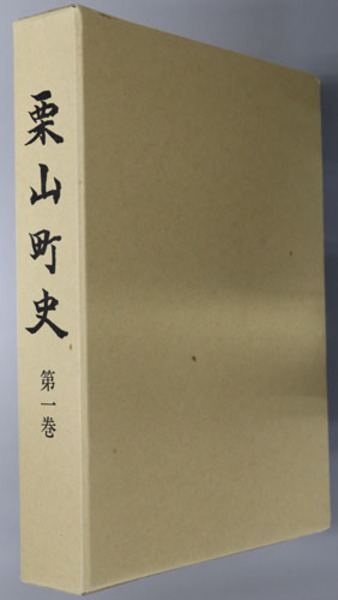 栗山町史
第一巻